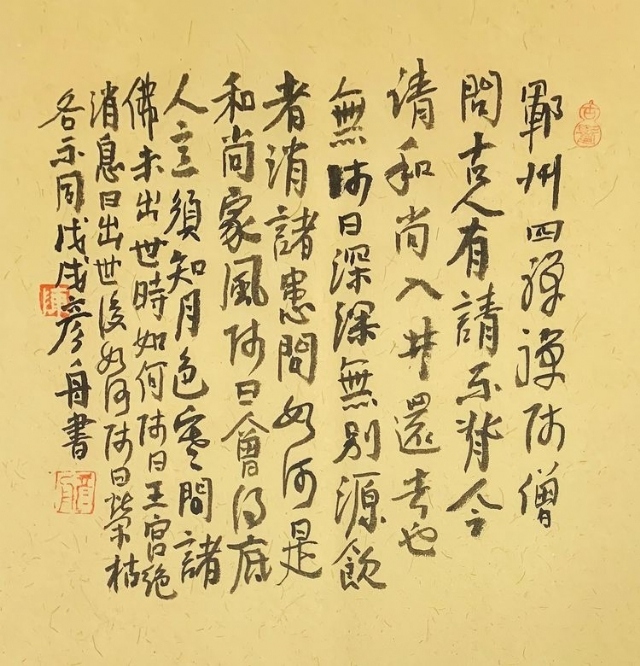 鄆州四禪禪師僧
問古人有請不背今
请和尚入井還去也
無師曰深深無別源飲
者消諸患問如何是
和尚家風師曰會得底
人意須知月色寒問諸
佛未出世時如何師曰王宮絕
消息曰出世後如何師曰榮枯
各不同戊戌彥舟書